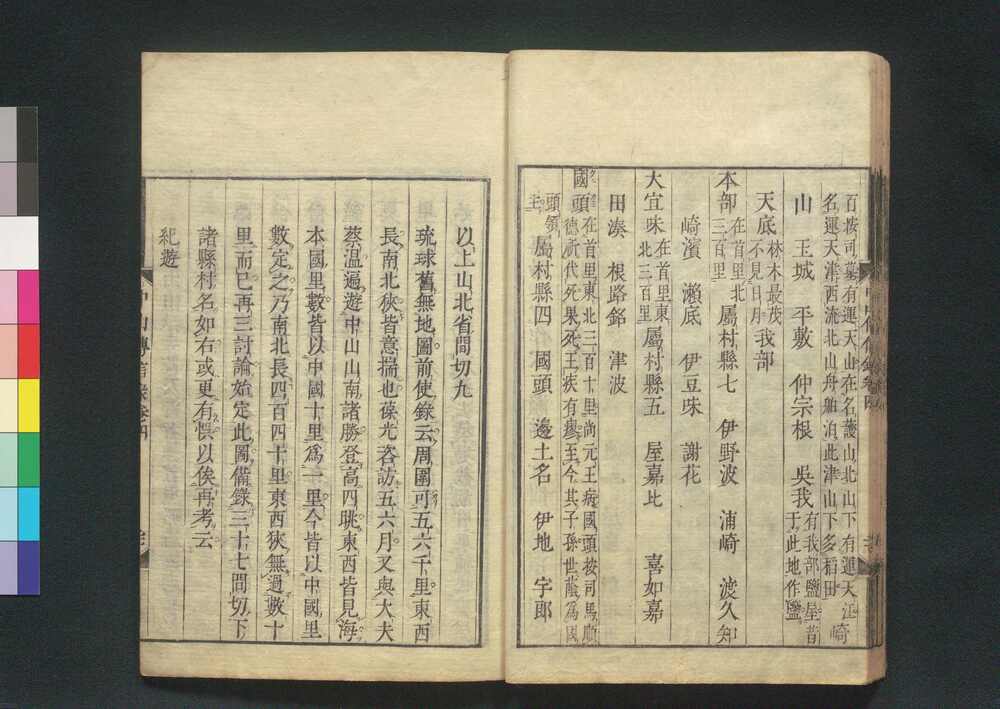 百按司墓有運天山在名護山北山下有運天江崎
名運天津西流北山舟舶泊此津山下多稻田
山 玉城 平敷 仲宗根 吳我有我部鹽屋昔于此地作鹽
天底林木最茂不見日月 我部
本部在首里北三百里 屬村縣七 伊野波 浦崎 渡久知
崎濱 瀨底 伊豆味 謝花
大宜味在首里東北三百里 屬村縣五 屋嘉比 喜如嘉
田湊 根路銘 津波
國頭在首里東北三百十里尚元王病國頭按司馬順德祈代死果死王疾有瘳至今其子孫世蔭爲國
頭領主 屬村縣四 國頭 邊土名 伊地 宇郎
以上山北省間切九
琉球舊無地圖前使錄云周圍可五六千里東西
長南北狹皆意揣也葆光咨訪五六月又與大夫
蔡溫遍遊中山山南諸勝登高四眺東西皆見海
本國里數皆以中國十里爲一里今皆以中國里
數定之乃南北長四百四十里東西狹無過數十
里而已再三討論始定此圖備錄三十七間切下
諸縣村名如右或更有悞以俟再考云
紀遊
中山傳信錄卷四